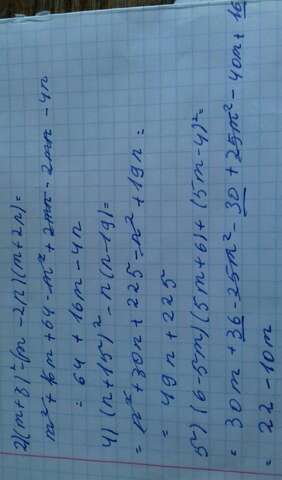 2)(m+8)²-(m-2n)(m+2n)=
m²+16m+64-m²+2mn-2mn-4n
= 64+16m-4n
4) (n+15)²-n(n-19)=
= n²+30n+225-n²+19n=
= 49n+225
5) (6-5m)(5m+6)+(5m-4)²=
= 30m+36-25m²-30+25m²-40m+16
= 22-10m